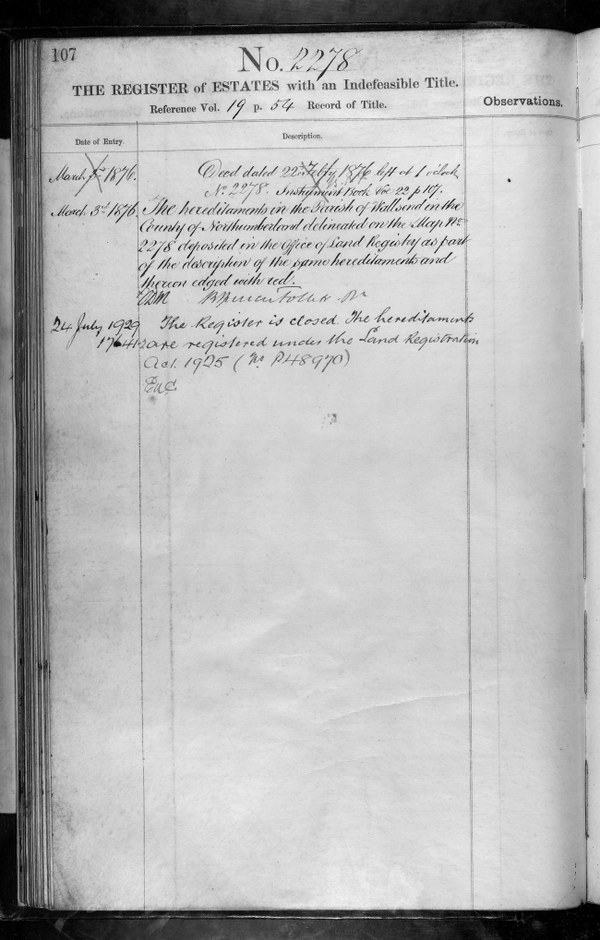 107
No. 2278
THE REGISTER of ESTATES with an Indefeasible Title.
Reference Vol. 19 p. 54 Record of Title.
Observations.
Date of Entry.
Description.
March 1st 1876. Deed dated 22nd Feby 1876 left at 1 o'clock
No 2278. Instrument Book Vol 22 p 107.
March 3rd 1876. The hereditaments in the Parish of Wallsend in the
County of Northumberland delineated on the Map No
2278 deposited in the Office of Land Registry as part
of the description of the same hereditaments and
thereon edged with red.
24 July 1929 The Register is closed. The hereditaments
are registered under the Land Registration
Act. 1925 (No. P48970)